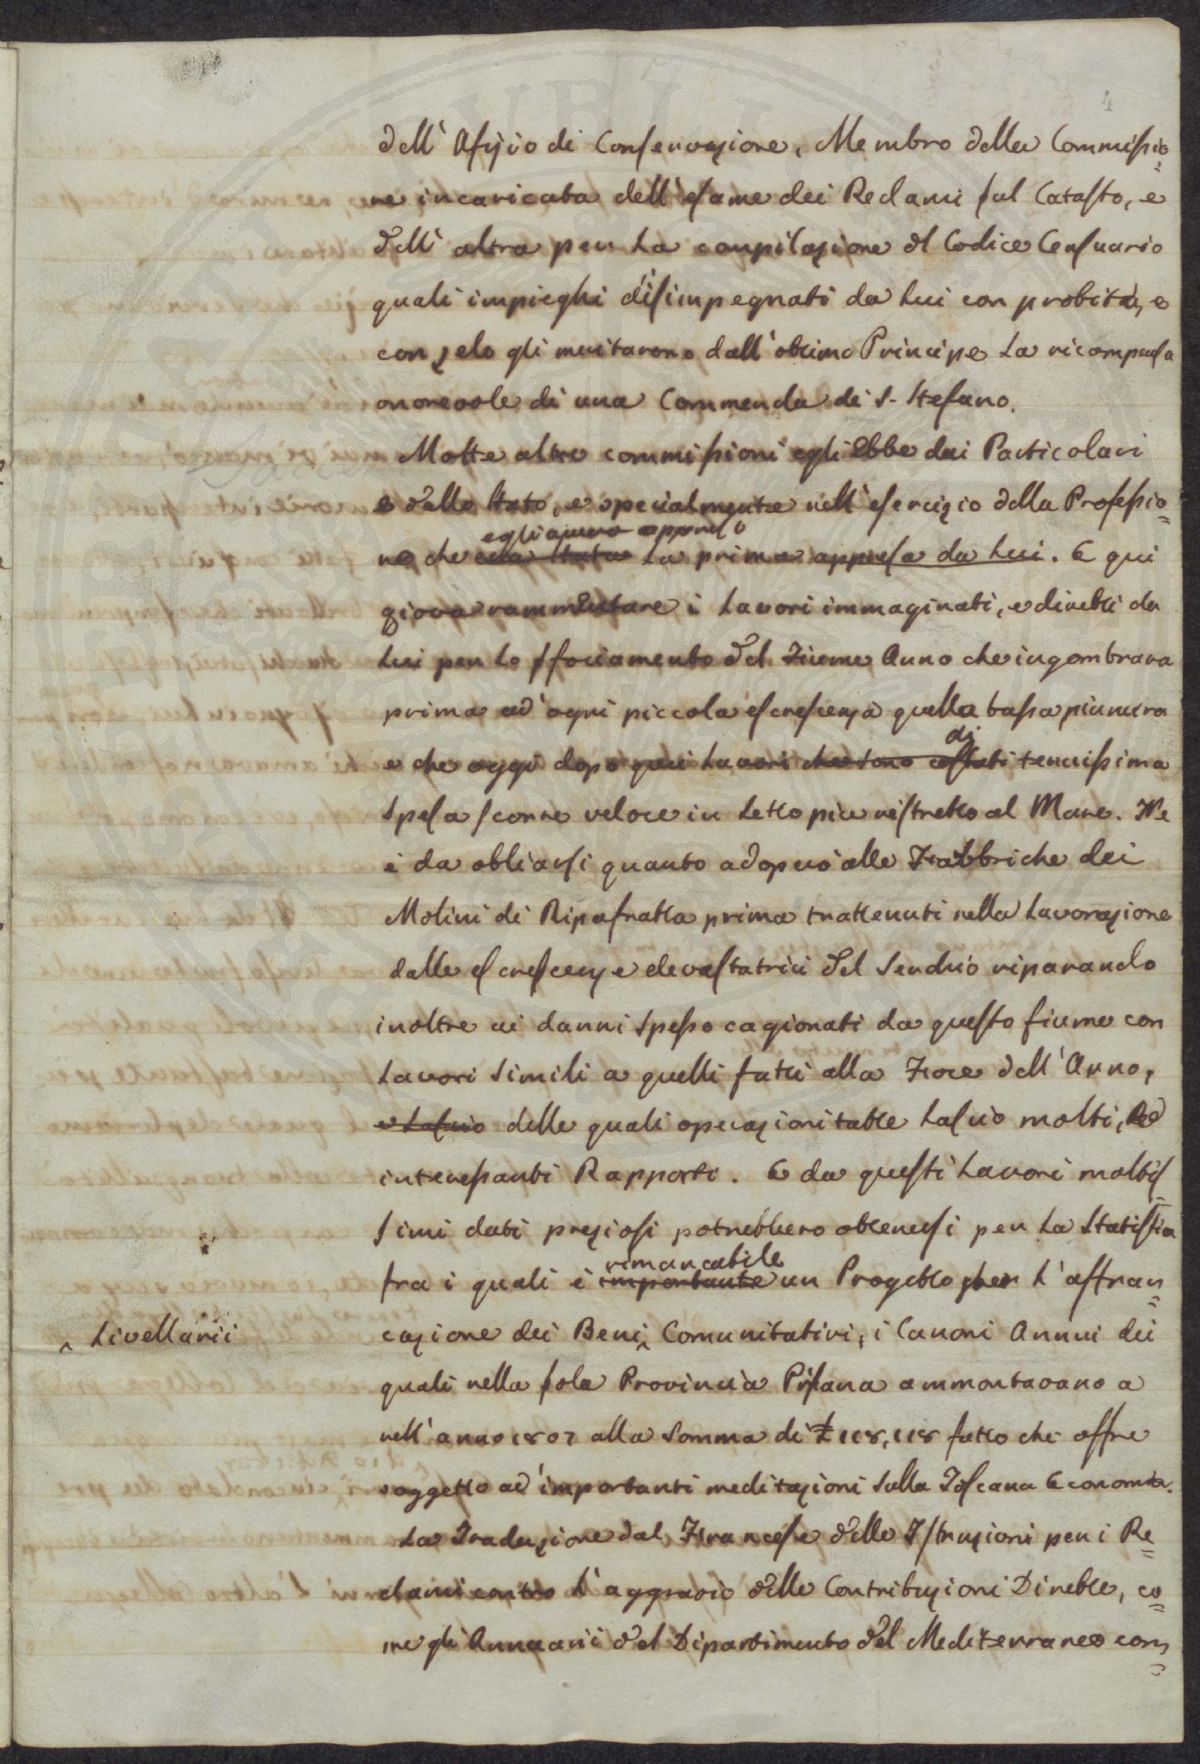 4
dell' Ufizio di Conservazione, Membro della Commissio=
ne incaricata dell' esame dei Reclami sul Catasto, e
dell' altra per la compilazione del Codice Censuario
quali impieghi disimpegnati da lui con probità, e
con zelo gli meritarono dall' ottimo Principe la ricompensa
onorevole di una Commenda di S. Stefano.
Molte altre commissioni egli ebbe dai Particolari
e dallo Stato, e specialmente nell' esercizio della Professio=
egli aveva appreso
ne che era stata la prima appresa da lui. E qui
giova rammentare i lavori immaginati, e diretti da
lui per lo sfociamento del Fiume Arno che ingombrava
prima ad' ogni piccola escrescenza quella bassa pianura
di
e che oggi dopo quei lavori che sono costati tenuissima
spesa scorre veloce in letto più ristretto al Mare. Ne
è da obliarsi quanto adoperò alle Fabbriche dei
Molini di Ripafratta prima trattenuti nella lavorazione
dalle escrescenze devastatrici del Serchio riparando
inoltre ai danni spesso cagionati da questo fiume con
lavori simili a quelli fatti alla Foce dell' Arno,
e lasciò delle quali operazioni tutte lasciò molti, ed
interessanti Rapporti. E da questi lavori moltis=
simi dati preziosi potrebbero ottenersi per la Statistica
rimarcabile
fra i quali è importante un Progetto per l' affran=
^ Livellarii
cazione dei Beni ^ Comunitativi, i Canoni Annui dei
quali nella sola Provincia Pisana ammontavano a
nell' anno 1807 alla somma di £ 118,118 fatto che offre
soggetto ad' importanti meditazioni sulla Toscana Economia.
La Traduzione dal Francese delle Istruzioni per i Re=
clami contro l' aggravio delle Contribuzioni Dirette, co=
me gli Annuarii del Dipartimento del Mediterraneo com=